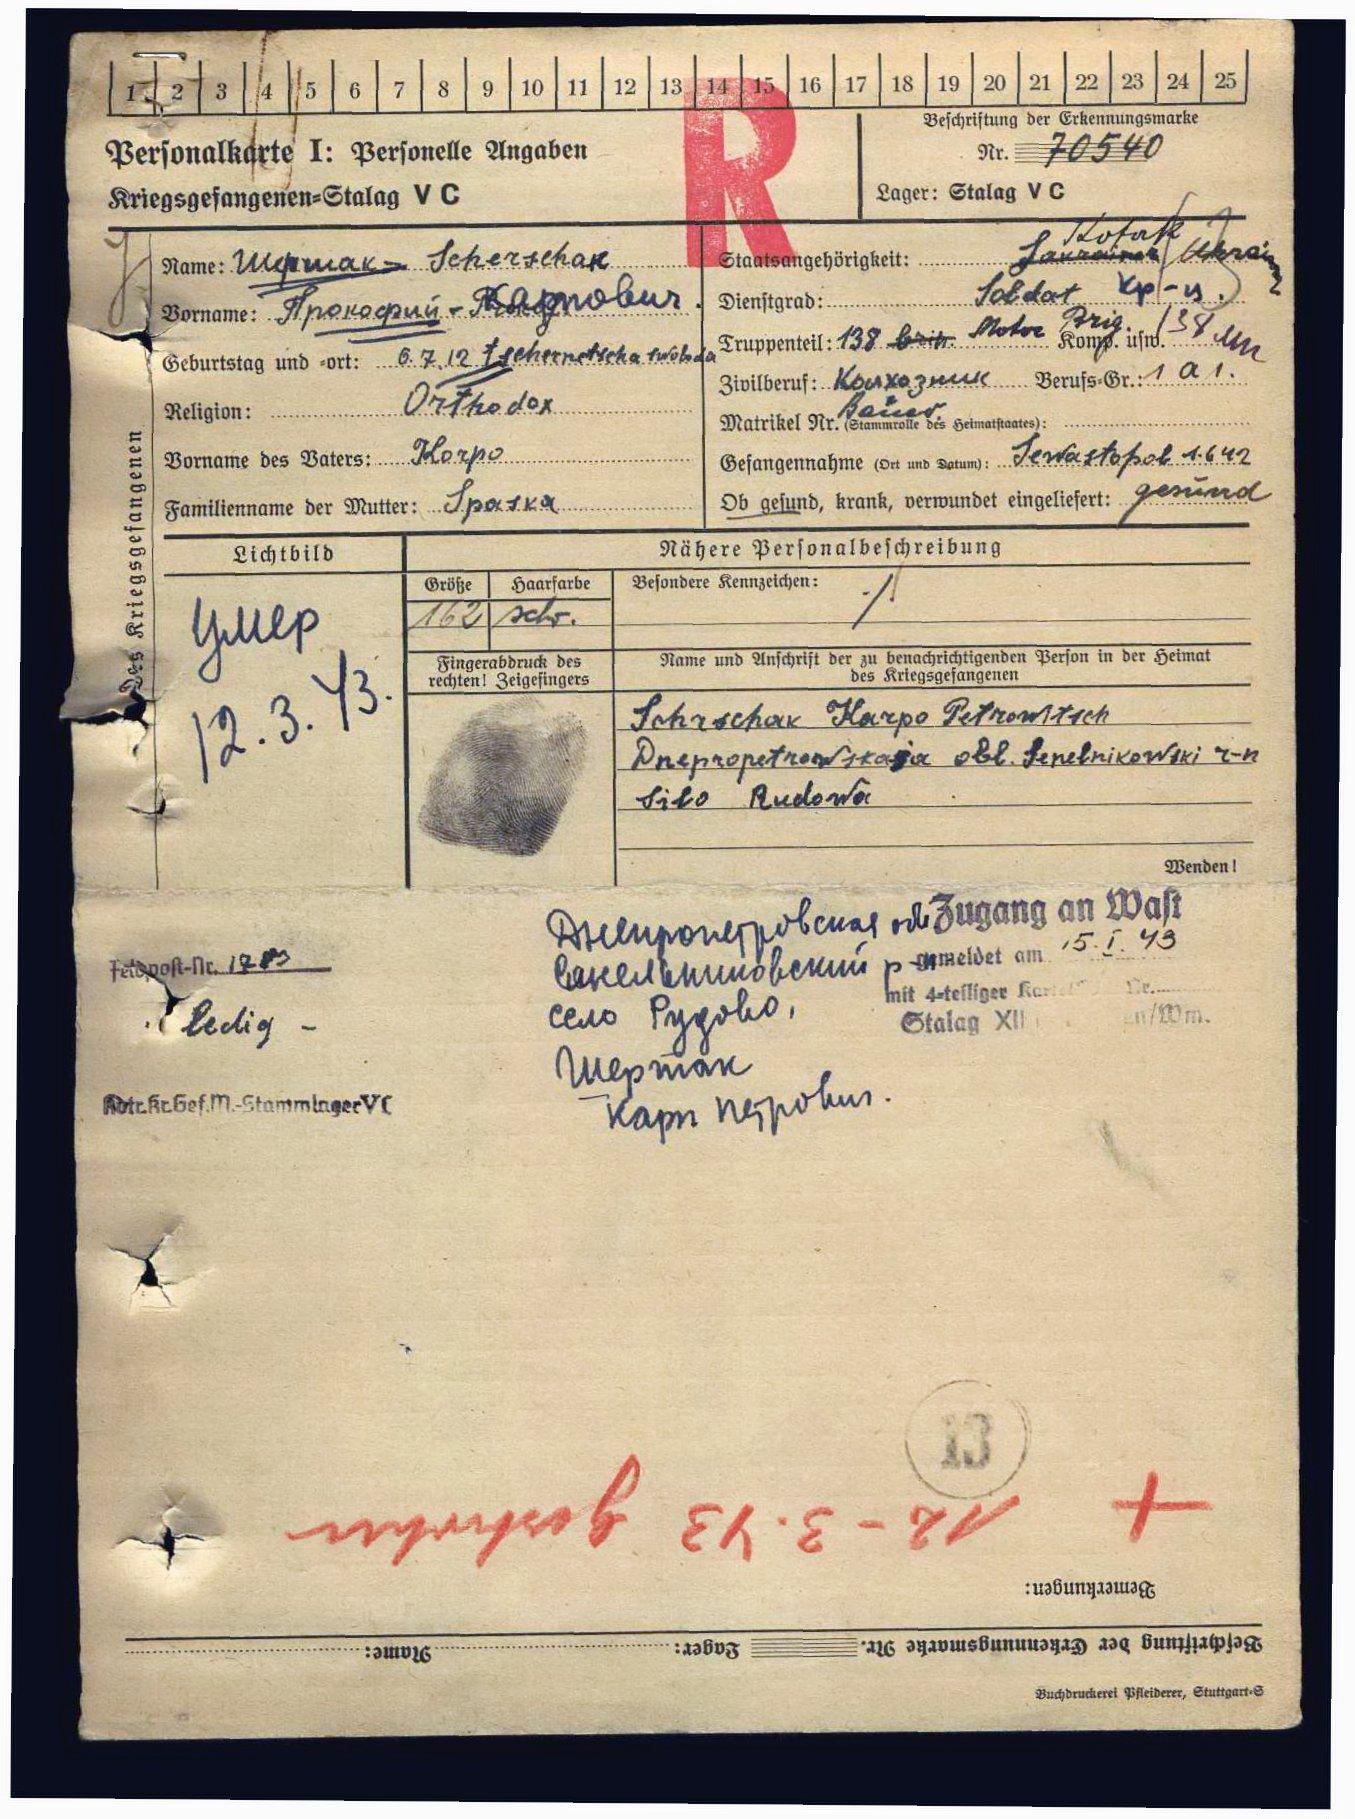 1 2 3 4 5 6 7 8 9 10 11 12 13 14 15 16 17 18 19 20 21 22 23 24 25
R
Personalkarte I: Personelle Angaben
Kriegsgefangenen-Stalag V C
Beschriftung der Erkennungsmarke
Nr. 70540
Lager: Stalag V C
des Kriegsgefangenen
Name: Шершак - Scherschak
Vorname: Прокофий - Карпович.
Geburtstag und -ort: 6.7.12 Tschernetscha swoboda
Religion: Orthodox
Vorname des Vaters: Korpo
Familienname der Mutter: Spaska
Staatsangehörigkeit:
Dienstgrad: Soldat кр-ц.
Truppenteil: 138 Motor Brig. Komp. usw. 138
Zivilberuf: Колхозник Berufs-Gr.: 1 a 1.
Bauer
Matrikel Nr. (Stammrolle des Heimatstaates):
Gefangennahme (Ort und Datum): Sewastopol 1.6.42
Ob gesund, krank, verwundet eingeliefert: gesund
Lichtbild
Nähere Personalbeschreibung
Größe Haarfarbe Besondere Kennzeichen:
162 schw. ./.
умер
12.3.43.
Fingerabdruck des
rechten! Zeigefingers
Name und Anschrift der zu benachrichtigenden Person in der Heimat
des Kriegsgefangenen
Schrschak Karpo Petrowitsch
Dnepropetrowskaja obl. Senelnikowski r-n
Silo Rudowa
Wenden!
Днепропетровская обл
Синельниковский р-н
село Рудово,
Шершак
Карп Петрович.
Zugang an Wast
gemeldet am 15. I. 43
mit 4-teiliger
Stalag XII
Feldpost-Nr. 1783
ledig -
Kdtr.Kr.Gef.M.-Stammlager V C
13
+ 12-3.43 gestorben
Bemerkungen:
Beschriftung der Erkennungsmarke Nr. Lager: Name:
Buchdruckerei Pfleiderer, Stuttgart-S